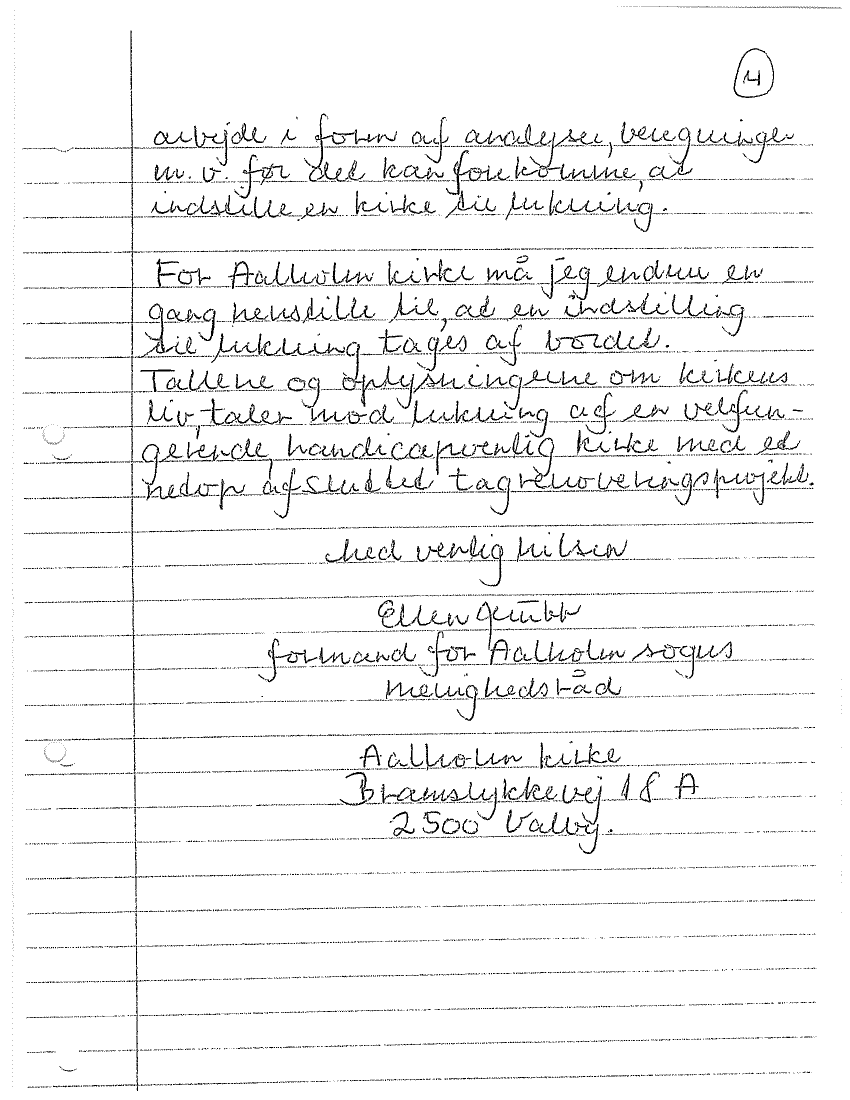 4
arbejde i form af analyser, beregninger
m.v. før det kan forekomme, at
indstille en kirke til lukning.
For Aalholm kirke må jeg endnu en
gang henstille til, at en indstilling
til lukning tages af bordet.
Tallene og oplysningerne om kirkens
liv, taler mod lukning af en velfun-
gerende, handicapvenlig kirke med et
netop afsluttet tagrenoveringsprojekt.
Med venlig hilsen
Ellen
formand for Aalholm sogns
menighedsråd
Aalholm kirke
Bramslykkevej 18 A
2500 Valby.